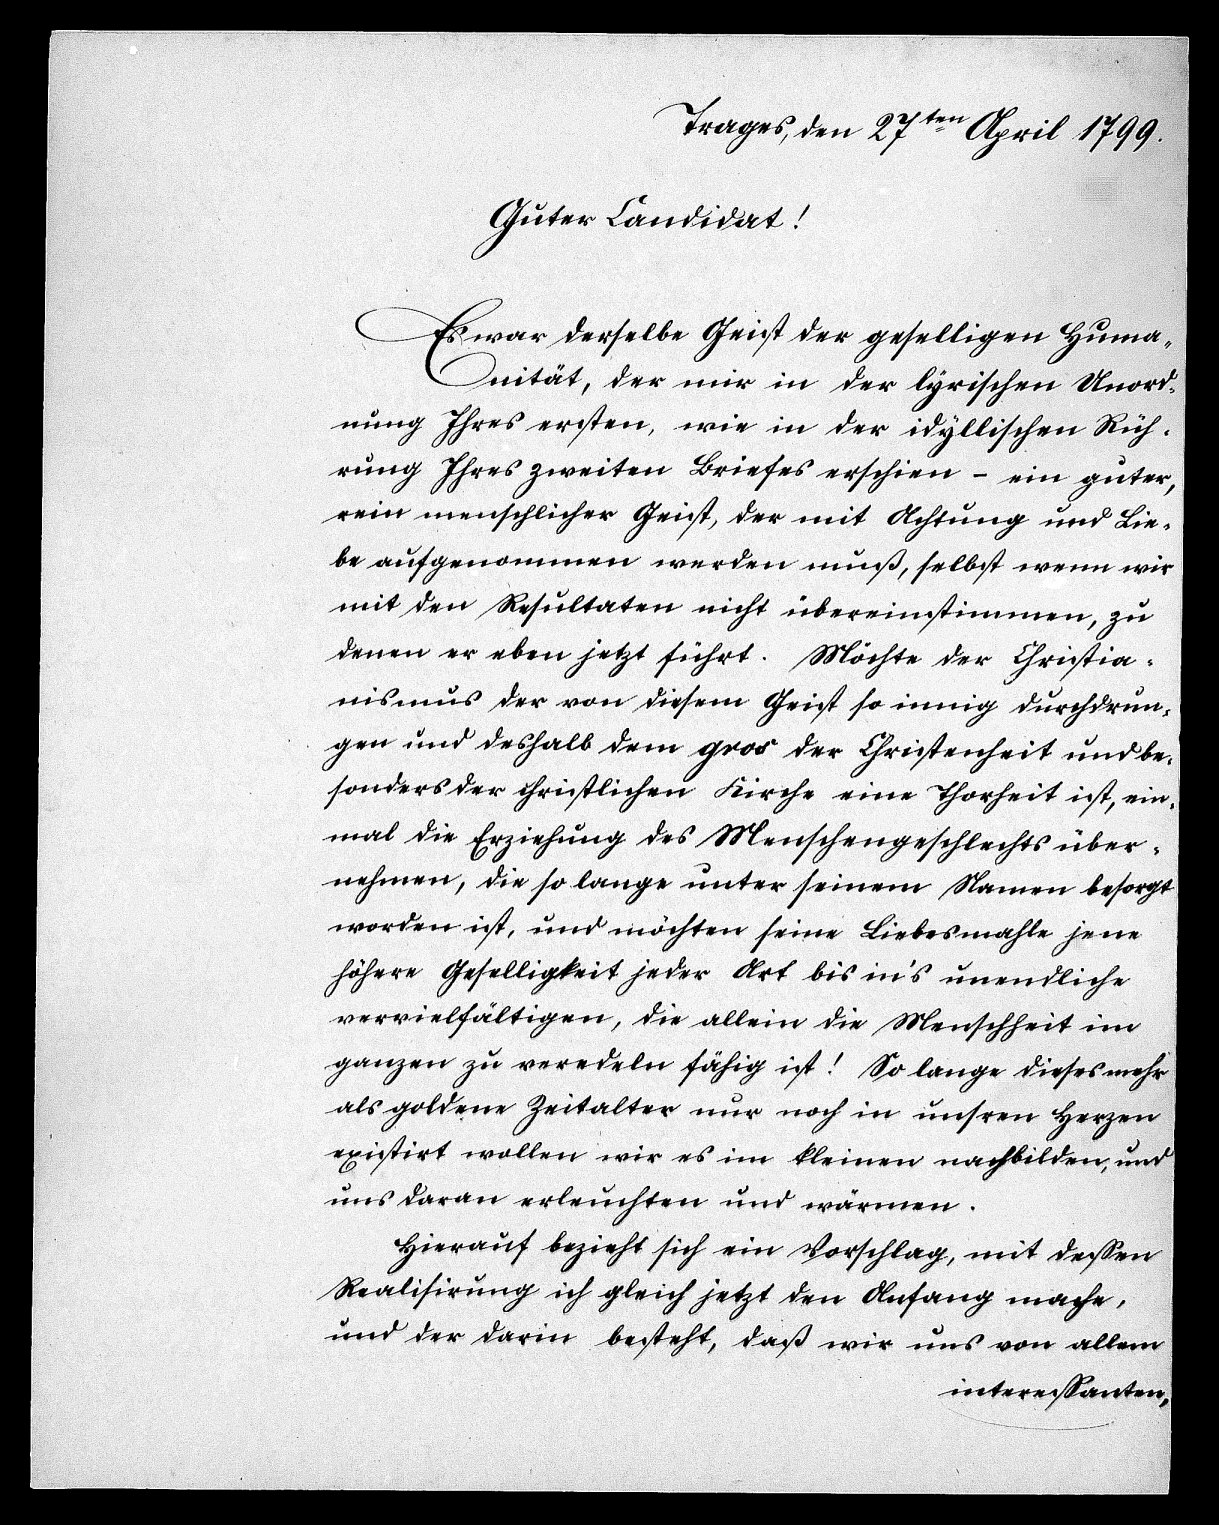 Trages, den 27ten April 1799.
Guter Candidat!
Es war derselbe Geist der geselligen Huma-
nität, der mir in der lÿrischen Unord-
nung Ihres ersten, wie in der idÿllischen Rüh-
rung Ihres zweiten Briefes erschien – ein guter,
rein menschlicher Geist, der mit Achtung und Lie-
be aufgenommen werden muß, selbst wenn wir
mit den Resultaten nicht übereinstimmen, zu
denen er eben jetzt führt. Möchte der Christia-
nismus der von diesem Geist so innig durchdrun-
gen und deshalb dem gros der Christenheit und be-
sonders der christlichen Kirche eine Thorheit ist, ein-
mal die Erziehung des Menschengeschlechts über-
nehmen, die so lange unter seinem Namen besorgt
worden ist, und möchten seine Liebesmahle jene
höhere Geselligkeit jeder Art bis in's unendliche
vervielfältigen, die allein die Menschheit im
ganzen zu veredeln fähig ist! So lange dieses mehr
als goldene Zeitalter nur noch in unsren Herzen
existirt wollen wir es im kleinen nachbilden, und
uns daran erleuchten und wärmen.
Hierauf bezieht sich ein Vorschlag, mit dessen
Realisirung ich gleich jetzt den Anfang mache,
und der darin besteht, daß wir uns von allem
interessanten,